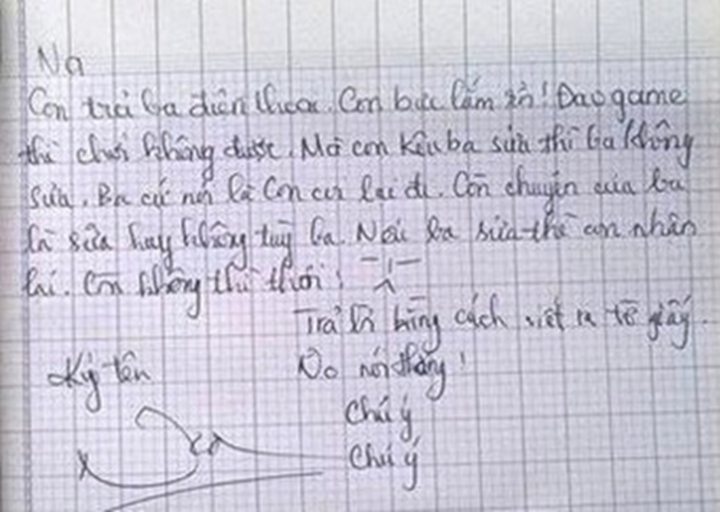 Na
Con trả ba điện thoại. Con bực lắm rồi! Dao game
thì chơi không được. Mà con kêu ba sửa thì ba không
sửa. Ba cứ nói là con cứ lại đi. Còn chuyện của ba
là sửa hay không tuỳ ba. Nếu ba sửa thì con nhận
lại. Còn không thì thôi!
Trả lời bằng cách viết ra tờ giấy.
No nói thẳng!
Ký tên
Chú ý
Chú ý